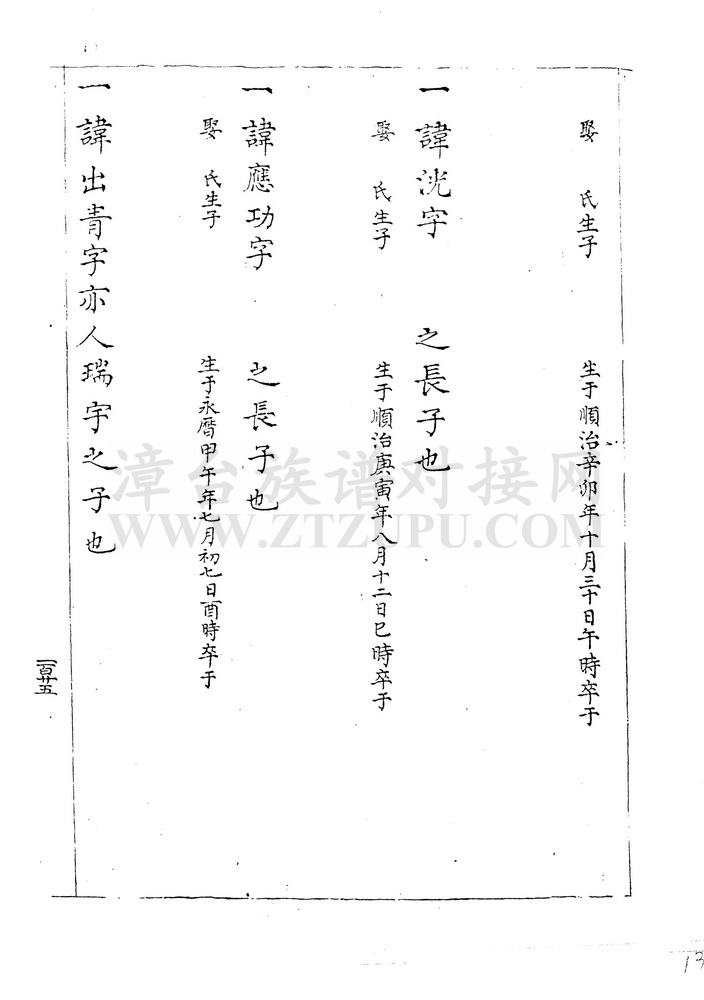 生于順治辛卯年十月三十日午時卒于
娶 氏生子
一諱洸字 之長子也
生于順治庚寅年八月十二日巳時卒于
娶 氏生子
一諱應功字 之長子也
生于永曆甲午年七月初七日酉時卒于
娶 氏生子
一諱出青字亦人瑞宇之子也
一百廿五
漳台族谱对接网
WWW.ZTZUPU.COM
13